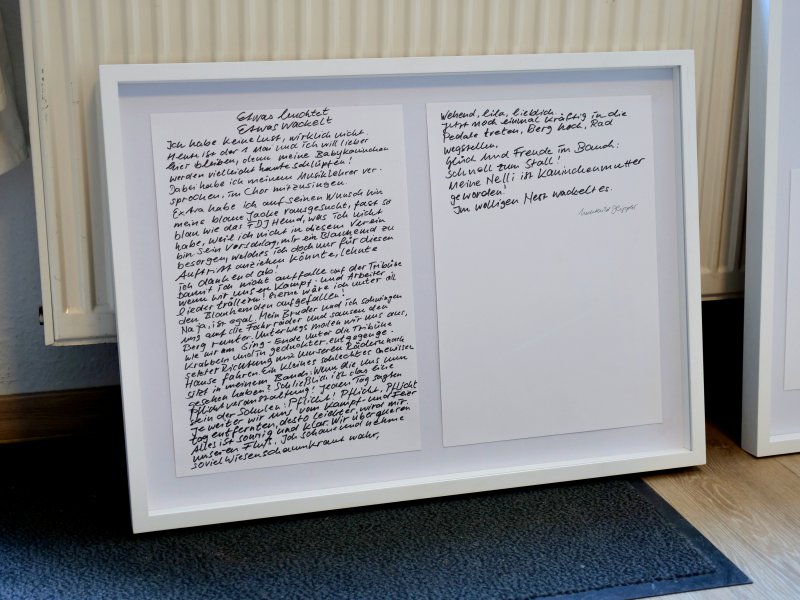 Etwas leuchtet
Etwas wackelt
Ich habe keine Lust, wirklich nicht.
Heute ist der 1 Mai und ich will lieber
hier bleiben, denn meine Babykaninchen
werden vielleicht heute schlüpfen!
Dabei habe ich meinem Musiklehrer ver-
sprochen, im Chor mitzusingen.
Extra habe ich auf seinen Wunsch hin
meine blaue Jacke rausgesucht, fast so
blau wie das FDJ Hemd, was ich nicht
habe, weil ich nicht in diesem Verein
bin. Sein Vorschlag, mir ein Blauhemd zu
besorgen, welches ich doch nur für diesen
Auftritt anziehen könnte, lehnte
ich dankend ab!
Damit ich nicht auffalle auf der Tribüne
wenn wir unsere Kampf- und Arbeiter
lieder trällern! Gerne wäre ich unter all
den Blauhemden aufgefallen!
Na ja, ist egal. Mein Bruder und ich schwingen
uns auf die Fahrräder und sausen den
Berg runter. Unterwegs malen wir uns aus,
wie wir am Sing-Ende unter die Tribüne
krabbeln und in geduckter, entgegenge-
setzter Richtung mit unseren Rädern nach
Hause fahren. Ein kleines schlechtes Gewissen
sitzt in meinem Bauch: Wenn die uns nun
gesehen haben? Schließlich ist das eine
Pflichtveranstaltung! Jeden Tag sagten
sie in der Schule: Pflicht! Pflicht, Pflicht
Je weiter wir uns vom Kampf- und Feier
tag entfernten, desto leichter wird mir.
Alles ist sonnig und klar. Wir überqueren
unseren Fluß. Ich schaue und nehme
soviel Wiesenschaumkraut wahr,
Wehend, lila, lieblich
Jetzt noch einmal kräftig in die
Pedale treten, Berg hoch, Rad
wegstellen.
Glück und Freude im Bauch:
Schnell zum Stall!
Meine Nelli ist Kaninchenmutter
geworden!
Im wolligen Nest wackelt es.